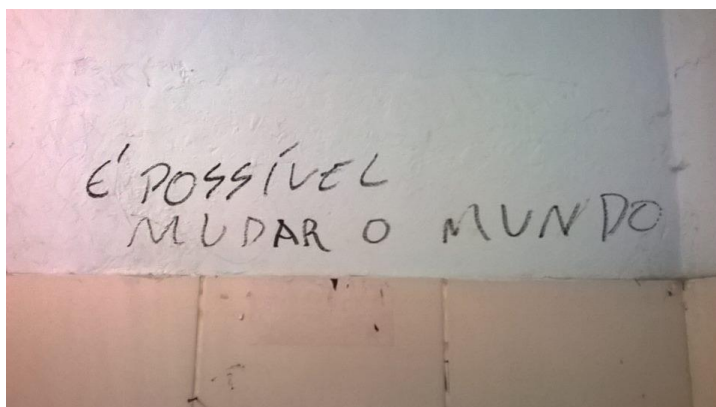 É POSSÍVEL
MUDAR O MUNDO